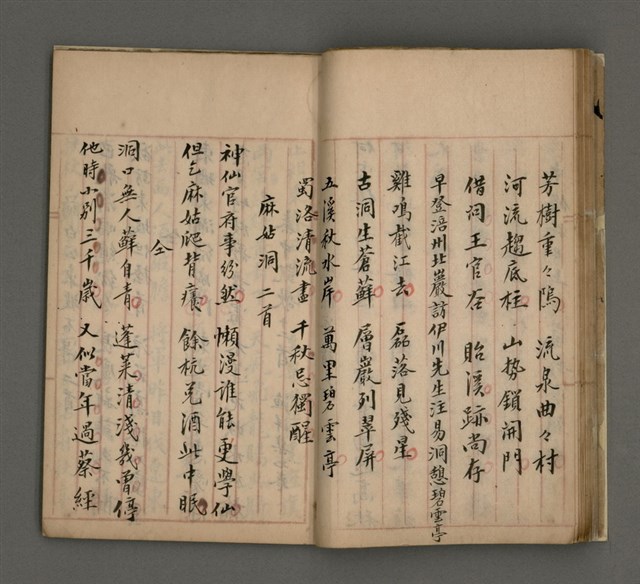 芳樹重々隝　流泉曲々村
河流趨底柱　山势鎖開門
借问王官谷　貽溪跡尚存
早登涪州北巖訪伊川先生注易洞憩碧雲亭
雞鳴截江去　磊落見殘星
古洞生蒼蘚　層巖列翠屏
五溪秋水岸　萬里碧雲亭
蜀洛清流盡　千秋忌獨醒
麻姑洞二首
神仙官府事紛然　懶漫誰能更學仙
但乞麻姑爬背癢　餘杭兄酒此中眠
仝
洞口無人蘚自青　蓬萊清淺幾曾停
他時小別三千歲　又似當年過蔡經